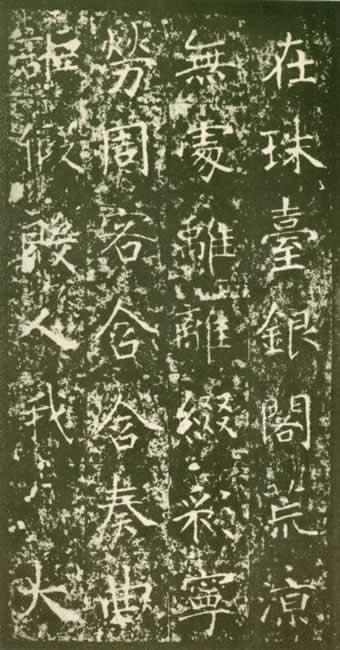 在珠臺銀閣荒凉
無處離離綴彩寧
勞周客含含奏曲
詎假殷人我大